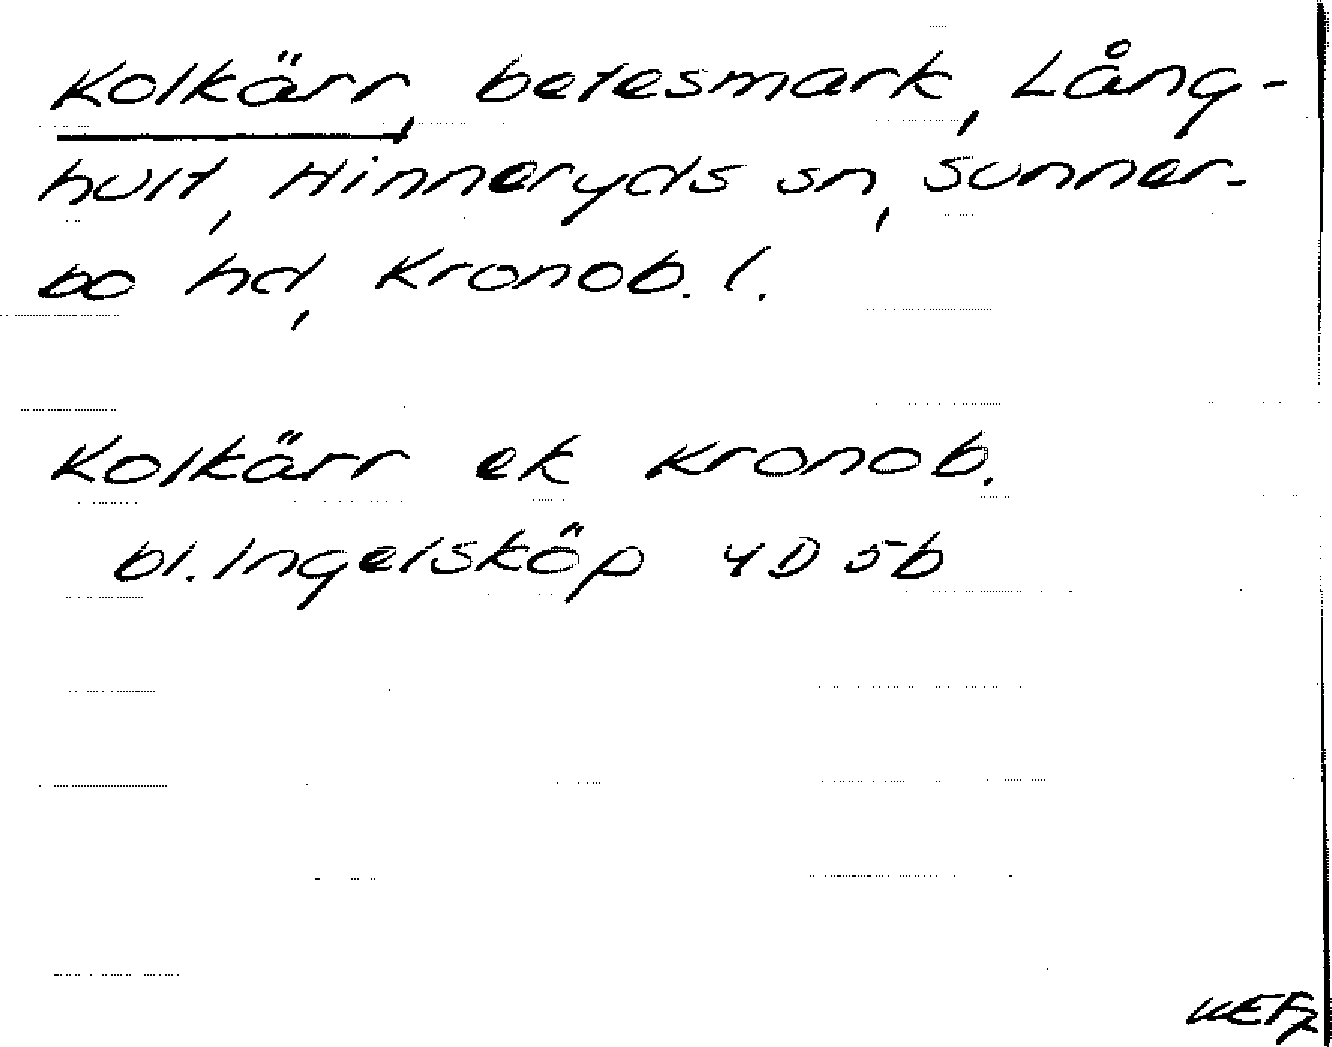 Kolkärr, betesmark, Lång-
hult, Hinneryds sn, Sunner-
bo hd, Kronob. l.
Kolkärr ek Kronob.
bl. Ingelsköp 4D 5b